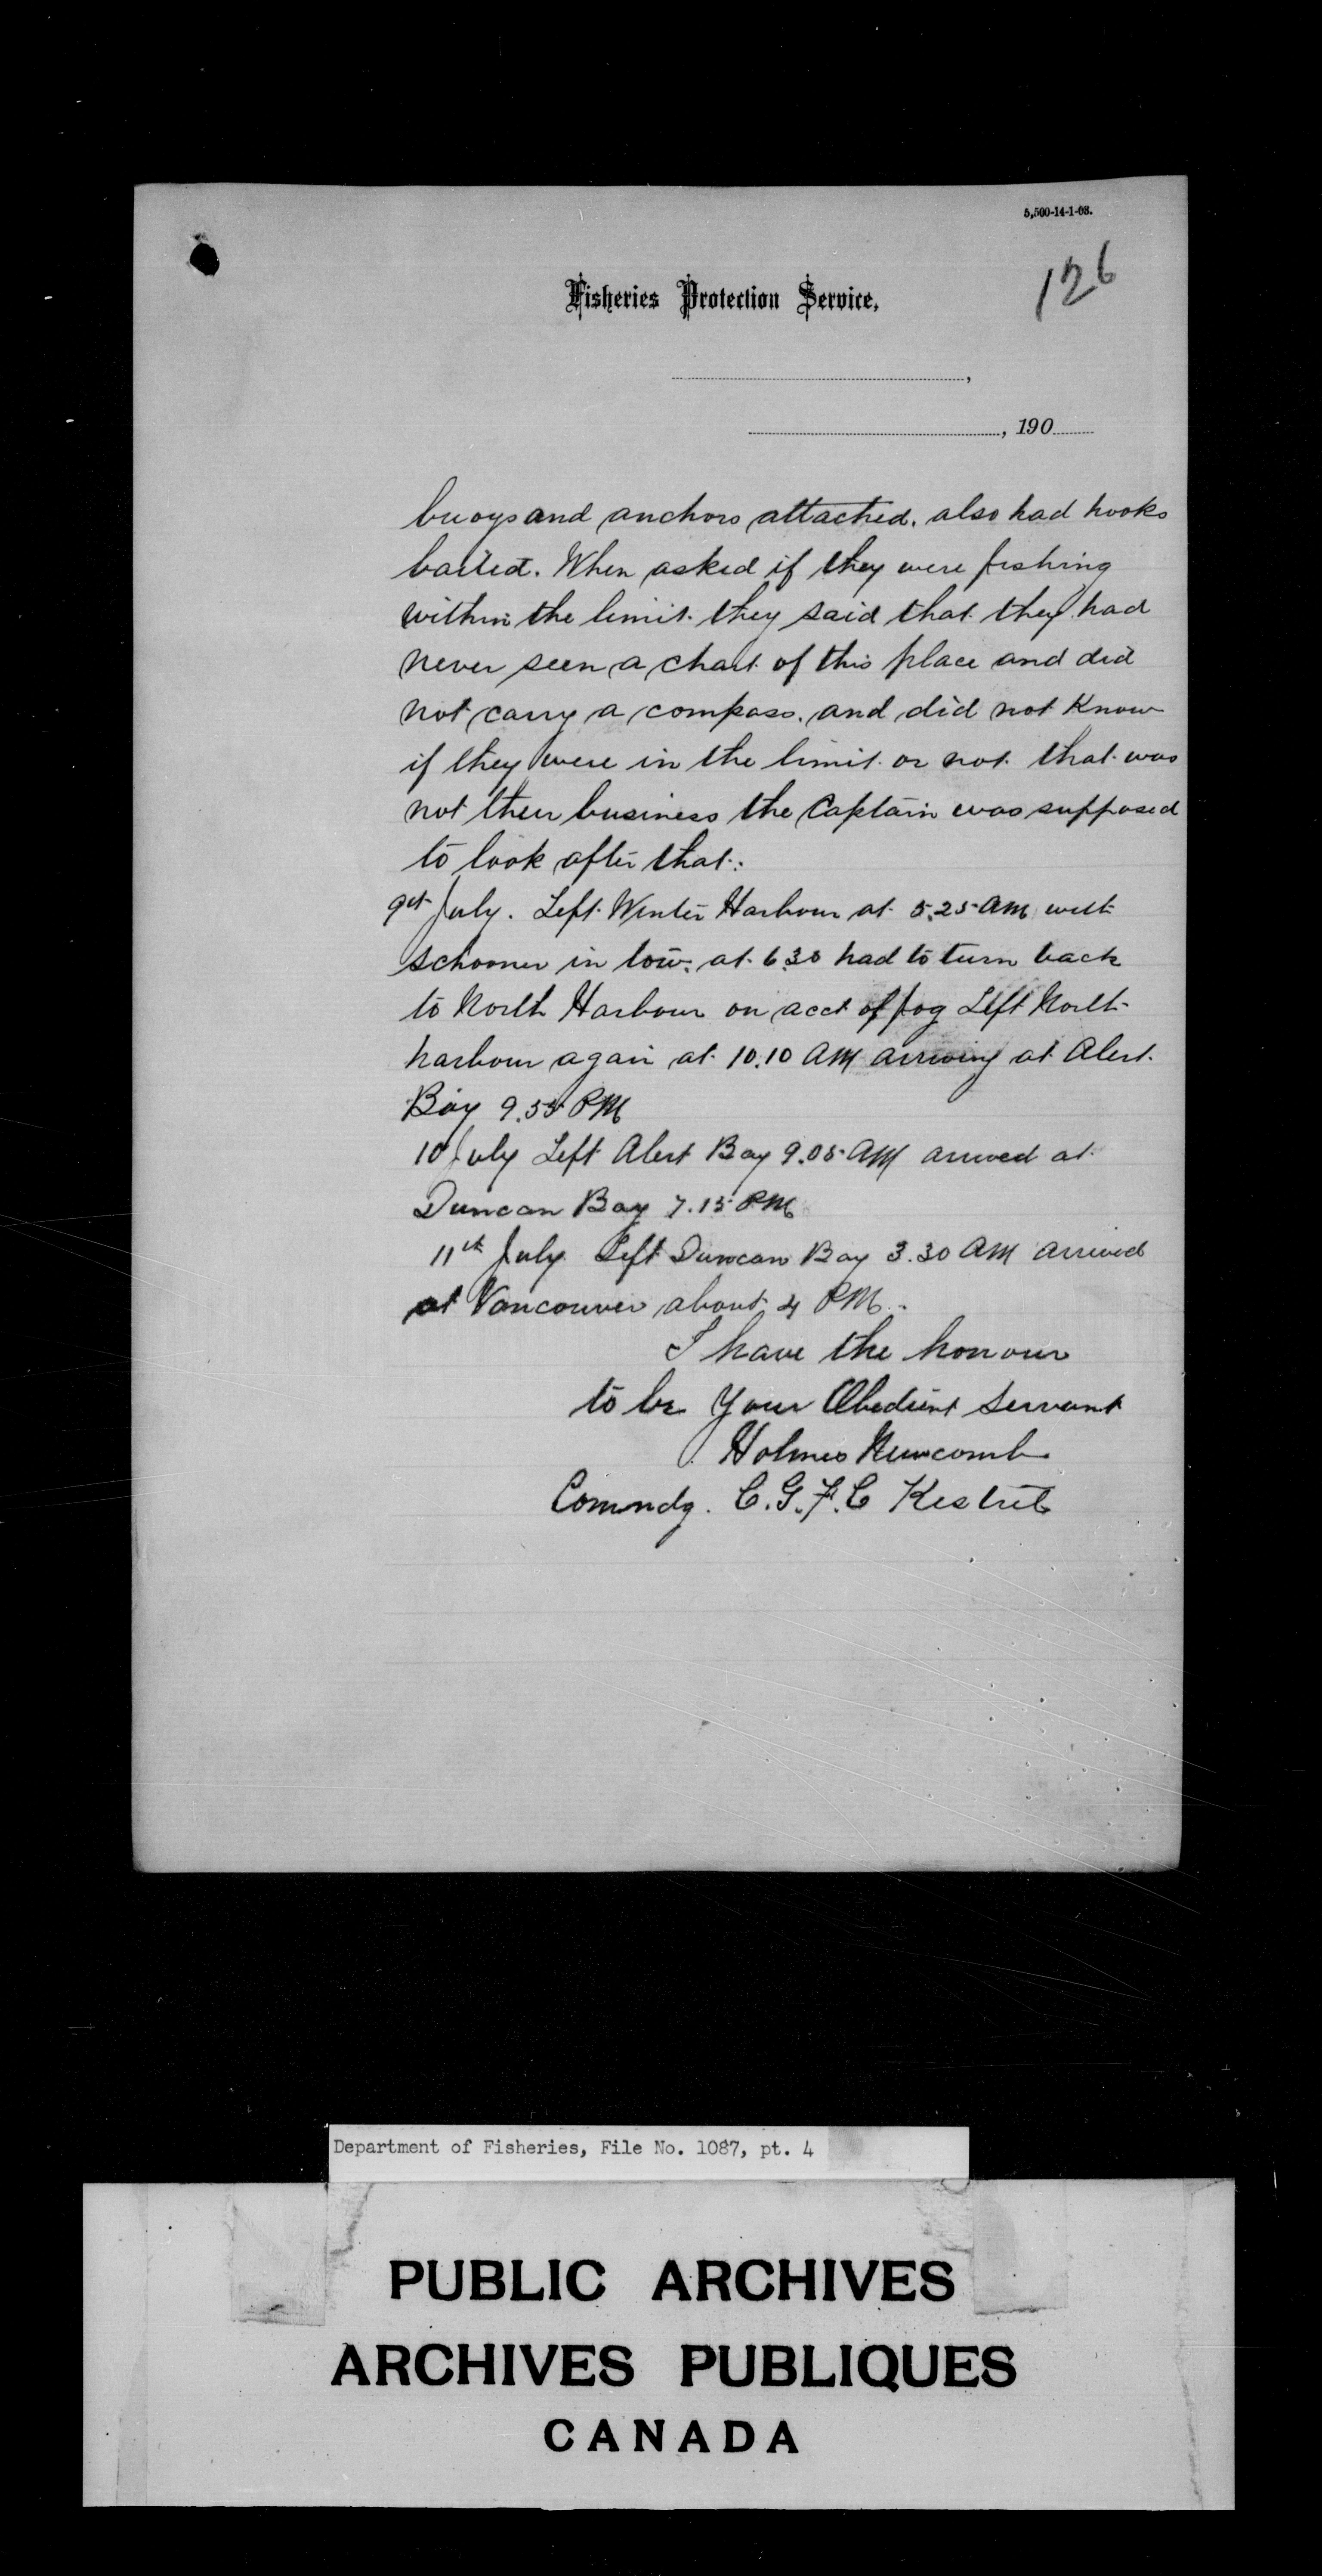 5,500-14-1-08.
126
Fisheries Protection Service,
, 190
buoys and anchors attached. also had hooks
baited. When asked if they were fishing
within the limit they said that they had
never seen a chart of this place and did
not carry a compass. and did not know
if they were in the limit or not that was
not their business the Captain was supposed
to look after that.
9th July. Left Winter Harbour at 5.25 AM with
schooner in tow. at 6.30 had to turn back
to North Harbour on acct of fog Left North
harbour again at 10.10 AM arriving at Alert
Bay 9.55 PM
10 July Left Alert Bay 9.05 AM arrived at
Duncan Bay 7.15 PM
11th July Left Duncan Bay 3.30 AM arrived
at Vancouver about 4 PM.
I have the honour
to be Your Obedient Servant
Holmes Newcomb
Commdg. C.G.F.C Kestrel
Department of Fisheries, File No. 1087, pt. 4
PUBLIC ARCHIVES
ARCHIVES PUBLIQUES
CANADA